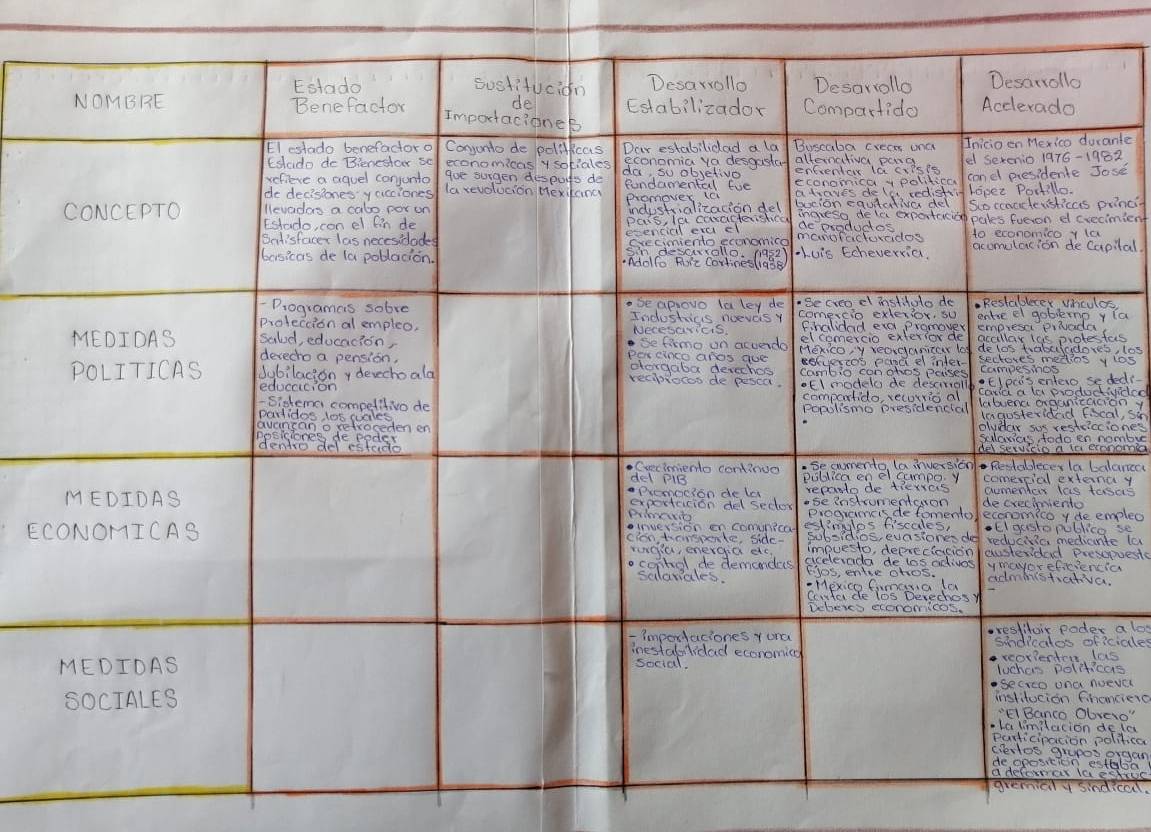 NOMBRE
Estado
Benefactor
Sustitución
de
Importaciones
Desarrollo
Estabilizador
Desarrollo
Compartido
Desarrollo
Acelerado
CONCEPTO
El estado benefactor o
Estado de Bienestar se
refiere a aquel conjunto
de decisiones y acciones
llevadas a cabo por un
Estado, con el fin de
Satisfacer las necesidades
basicas de la poblacion.
Conjunto de politicas
economicas y sociales
que surgen después de
la revolución Mexicana
Dar estabilidad a la
economia ya desgasta-
da, su objetivo
fundamental fue
Promover la
industrialización del
país, la caracteristica
esencial era el
crecimiento economico
sin desarrollo. (1952)
•Adolfo Ruiz Cortines (1958)
Buscaba crecer una
alternativa para
enfrentar la crisis
economica y politica
a través de la redistri-
bución equitativa del
ingreso de la exportación
de productos
manofacturados
•Luis Echeverria.
Inicio en Mexico durante
el sexenio 1976-1982
con el presidente José
López Portillo.
Sus caracteristicas princi-
pales fueron el crecimien-
to economico y la
acumulación de Capital.
MEDIDAS
POLITICAS
-Programas sobre
Protección al empleo,
salud, educación,
derecho a pensión,
Jubilación y derecho a la
educcación
-Sistema competitivo de
partidos, los cuales
avanzan o retroceden en
posiciones de poder
dentro del estado
•Se aprovo la ley de
Industrias nuevas y
Necesarias.
•Se firmo un acuerdo
Por cinco años que
otorgaba derechos
reciprocos de pesca.
•Se creo el instituto de
comercio exterior, su
finalidad era promover
el comercio exterior de
México, y reorganizar los
esfuerzos para el inter-
cambio con otros paises.
•El modelo de desarrollo
compartido, recurrió al
Populismo Presidencial
•
•Restablecer vinculos,
entre el gobierno y la
empresa privada
acallar las protestas
de los trabajadores, los
sectores medios y los
campesinos
•El país entero se dedi-
caria a la productividad
la buena organización y
la austeridad fiscal, sin
olvidar sus restricciones
salarias, todo en nombre
del servicio a la economia
MEDIDAS
ECONOMICAS
•Crecimiento continuo
del PIB
•Promoción de la
exportación del sector
Primario
•inversión en comunica-
ción, transporte, side-
rurgia, energia etc.
•control de demandas
Salariales.
•Se aumento la inversión
publica en el campo. y
reparto de tierras
•Se instrumentaron
programas de fomento,
estimulos fiscales,
subsidios, evasiones de
impuesto, depreciación
acelerada de los activos
fijos, entre otros.
•México firmaria la
Carta de los Derechos y
Deberes economicos.
•Restablecer la balanza
comercial externa y
aumentar las tasas
de crecimiento
economico y de empleo
•El gasto publico se
reduciria mediante la
austeridad presupuesta
y mayor eficiencia
administrativa.
-
MEDIDAS
SOCIALES
-importaciones y una
inestabilidad economica
social.
•restituir poder a los
Sindicatos oficiales
•reorientar las
luchas politicas
•Se creo una nueva
institución financiera
"El Banco Obrero"
•La limitación de la
Participación politica
ciertos grupos organ
de oposición estaba
a deformar la estruc
gremial y Sindical.